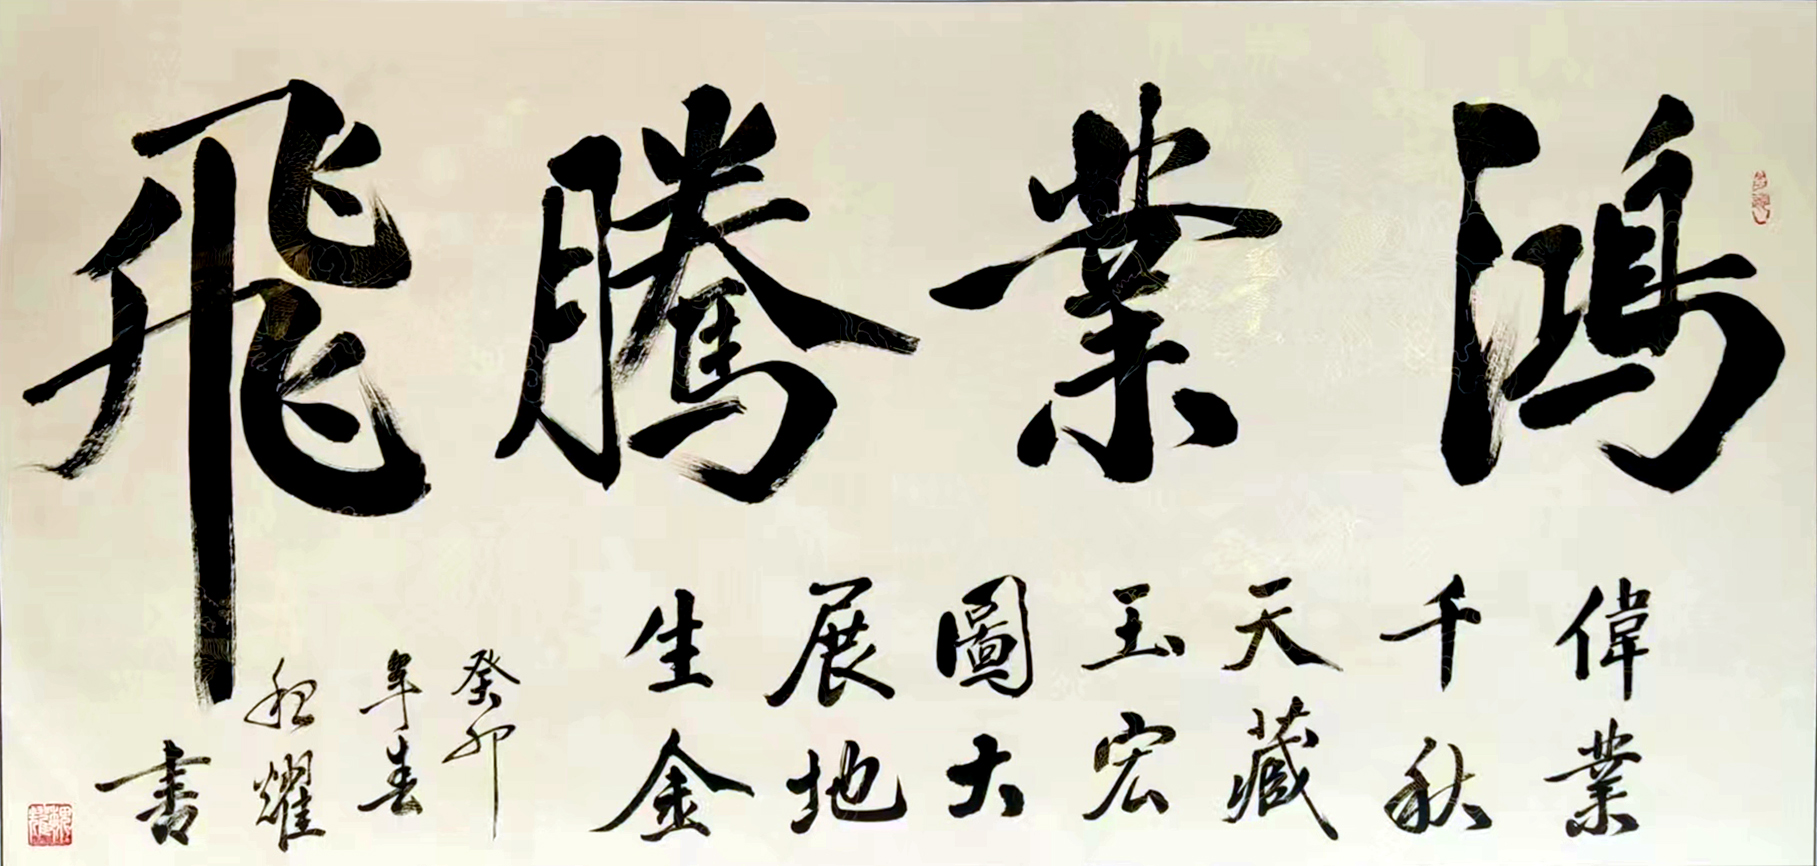 鴻業騰飛
偉業
千秋
天藏
玉宏
圖大
展地
生金
癸卯
年春
耀
書